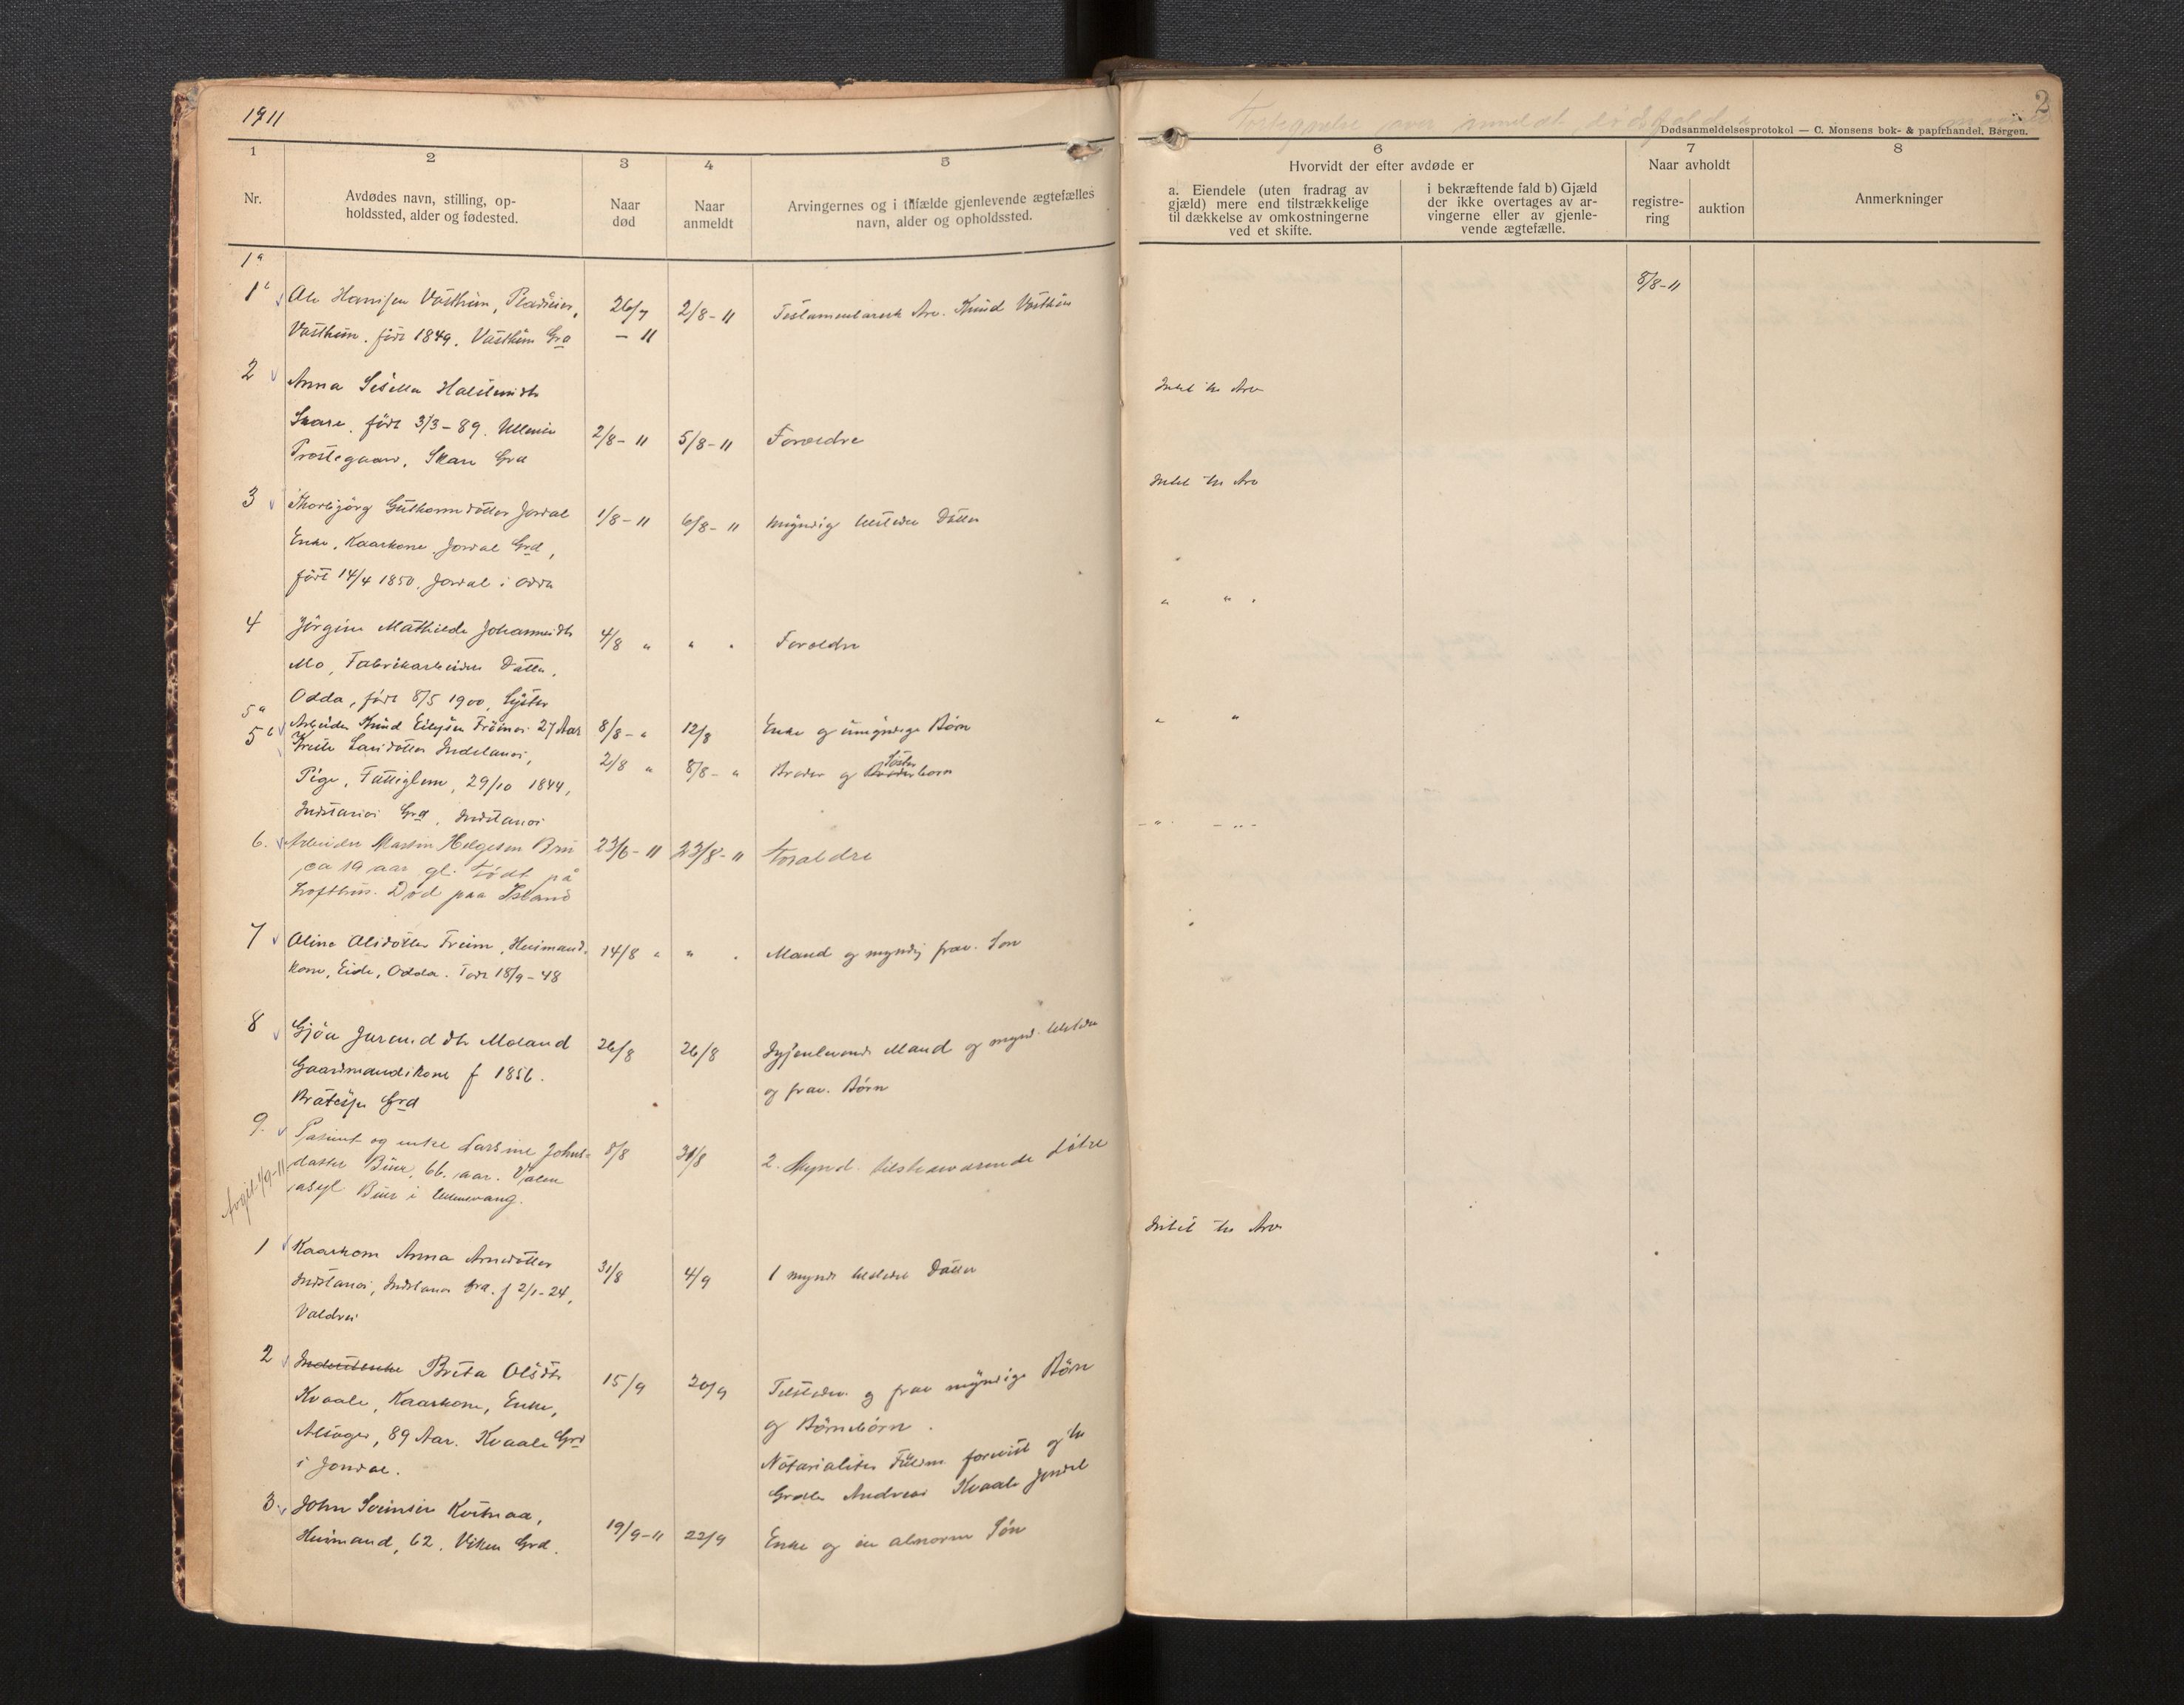 1911
2
Dødsanmeldelsesprotokol — C. Monsens bok- & papirhandel. Bergen.
1 2 3 4 5 6 7 8
Nr.
Avdødes navn, stilling, op-
holdssted, alder og fødested.
Naar
død
Naar
anmeldt
Arvingernes og i tilfælde gjenlevende ægtefælles
navn, alder og opholdssted.
Hvorvidt der efter avdøde er
a. Eiendele (uten fradrag av
gjæld) mere end tilstrækkelige
til dækkelse av omkostningerne
ved et skifte.
i bekræftende fald b) Gjæld
der ikke overtages av ar-
vingerne eller av gjenle-
vende ægtefælle.
Naar avholdt
registre-
ring
auktion
Anmerkninger
1a
1b Ole Hansen Vasthun,
Vasthun. født 1849. Vasthun Grd
26/7
- 11
2/8 - 11
Testamentarisk Arv. Knud Vasthun
8/8-11
2 Anna
Skare. født 3/3-89.
Prestegaard, Skare Grd
2/8 - 11 5/8 - 11 Foreldre
Intet til Arv
3 Thorbjørg Guthormsdotter Jordal
Enke, Kaarkone. Jordal Grd,
født 14/4 1850. Jordal i Odda
1/8 - 11 6/8 - 11 Myndig tilstede Datter
Intet til Arv
4 Jørgine Mathilde Johannesdtr
Mo, Fabrikarbeiders Datter,
Odda, født 8/5 1900, Lyster
4/8 " " " Foreldre
" " "
5a Arbeider Knud 27 Aar
8/8 - " 12/8 Enke og umyndige Børn
5b Larsdotter
Pige, Fattiglem, 29/10 1844,
Grd,
2/8 " 8/8 - " Broder og Søsterborn
" "
6. Arbeider Martin Helgesen Bru
ca 19 aar gl. Født på
Lofthus. Død paa Island
23/6 - 11 23/8 - 11 Foraldre
- " - - " -
7 Oline Olsdotter Freim, Husmands-
kone, Eide, Odda. Født 18/9-48
14/8 " " " Mand og myndig frav. Son
8 Gjøa dtr Moland
Gaardmandskone f 1856.
Grd
26/8 26/8 Igjenlevende Mand og mynd. tilstede
og frav. Børn
9. Pasient og enke Larsine Johns-
datter Buer, 66. aar. Valen
asyl. Buer i Ullensvang.
8/8 31/8 2. Mynd. tilstedeværende døtre
1 Kaarkone Anna Arnedotter
Grd. f 2/1-24,
31/8 4/9 1 mynd tilstede Datter
Intet til Arv
2 Brita Olsdtr
Kvaale, Kaarkone, Enke,
89 Aar. Kvaale Grd
i Jondal.
15/9 20/9 Tilstedev. og frav myndige Børn
og Børnebørn.
forevist og til
Andreas Kvaale Jondal
3. John Kvitnaa,
Husmand, 62. Viken Grd.
19/9-11 22/9 Enke og en abnorm Søn